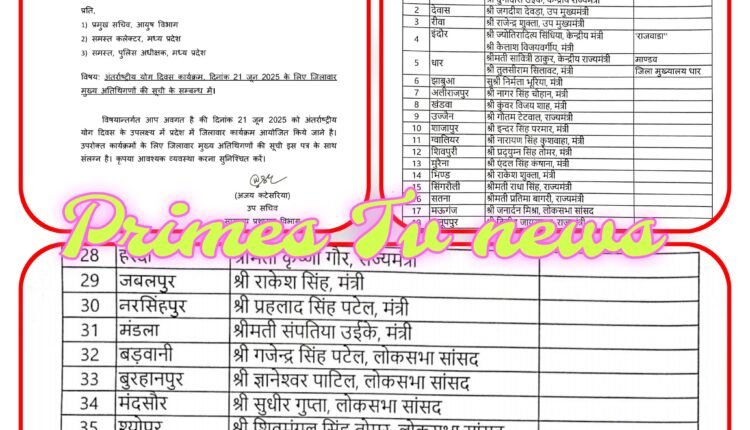 प्रति,
1) प्रमुख सचिव, आयुष विभाग
2) समस्त कलेक्टर, मध्य प्रदेश
3) समस्त, पुलिस अधीक्षक, मध्य प्रदेश
विषय: अंतर्राष्ट्रीय योग दिवस कार्यक्रम, दिनांक 21 जून 2025 के लिए जिलावार
मुख्य अतिथिगणों की सूची के सम्बन्ध में।
विषयान्तर्गत आप अवगत है की दिनांक 21 जून 2025 को अंतर्राष्ट्रीय
योग दिवस के उपलक्ष्य में प्रदेश में जिलावार कार्यक्रम आयोजित किये जाने है।
उपरोक्त कार्यक्रमों के लिए जिलावार मुख्य अतिथिगणों की सूची इस पत्र के साथ
संलग्न है। कृपया आवश्यक व्यवस्था करना सुनिश्चित करें।
(अजय कटेसरिया)
उप सचिव
2 देवास श्री जगदीश देवड़ा, उप मुख्यमंत्री
3 रीवा श्री राजेन्द्र शुक्ला, उप मुख्यमंत्री
4 इंदौर श्री ज्योतिरादित्य सिंधिया, केन्द्रीय मंत्री "राजवाडा"
श्री कैलाश विजयवर्गीय, मंत्री
5 धार श्रीमती सावित्री ठाकुर, केन्द्रीय राज्यमंत्री माण्डव
श्री तुलसीराम सिलावट, मंत्री जिला मुख्यालय धार
6 झाबुआ सुश्री निर्मला भूरिया, मंत्री
7 अलीराजपुर श्री नागर सिंह चौहान, मंत्री
8 खंडवा श्री कुंवर विजय शाह, मंत्री
9 उज्जैन श्री गौतम टेटवाल, राज्यमंत्री
10 शाजापुर श्री इन्दर सिंह परमार, मंत्री
11 ग्वालियर श्री नारायण सिंह कुशवाहा, मंत्री
12 शिवपुरी श्री प्रद्युम्न सिंह तोमर, मंत्री
13 मुरैना श्री एंदल सिंह कंषाना, मंत्री
14 भिण्ड श्री राकेश शुक्ला, मंत्री
15 सिंगरौली श्रीमती राधा सिंह, राज्यमंत्री
16 सतना श्रीमती प्रतिमा बागरी, राज्यमंत्री
17 मऊगंज श्री जनार्दन मिश्रा, लोकसभा सांसद
Primes Tv news
28 हरदा श्रीमती कृष्णा गौर, राज्यमंत्री
29 जबलपुर श्री राकेश सिंह, मंत्री
30 नरसिंहपुर श्री प्रहलाद सिंह पटेल, मंत्री
31 मंडला श्रीमती संपतिया उईके, मंत्री
32 बड़वानी श्री गजेन्द्र सिंह पटेल, लोकसभा सांसद
33 बुरहानपुर श्री ज्ञानेश्वर पाटिल, लोकसभा सांसद
34 मंदसौर श्री सुधीर गुप्ता, लोकसभा सांसद
35 श्योपुर श्री शिवमंगल सिंह तोमर, लोकसभा सांसद